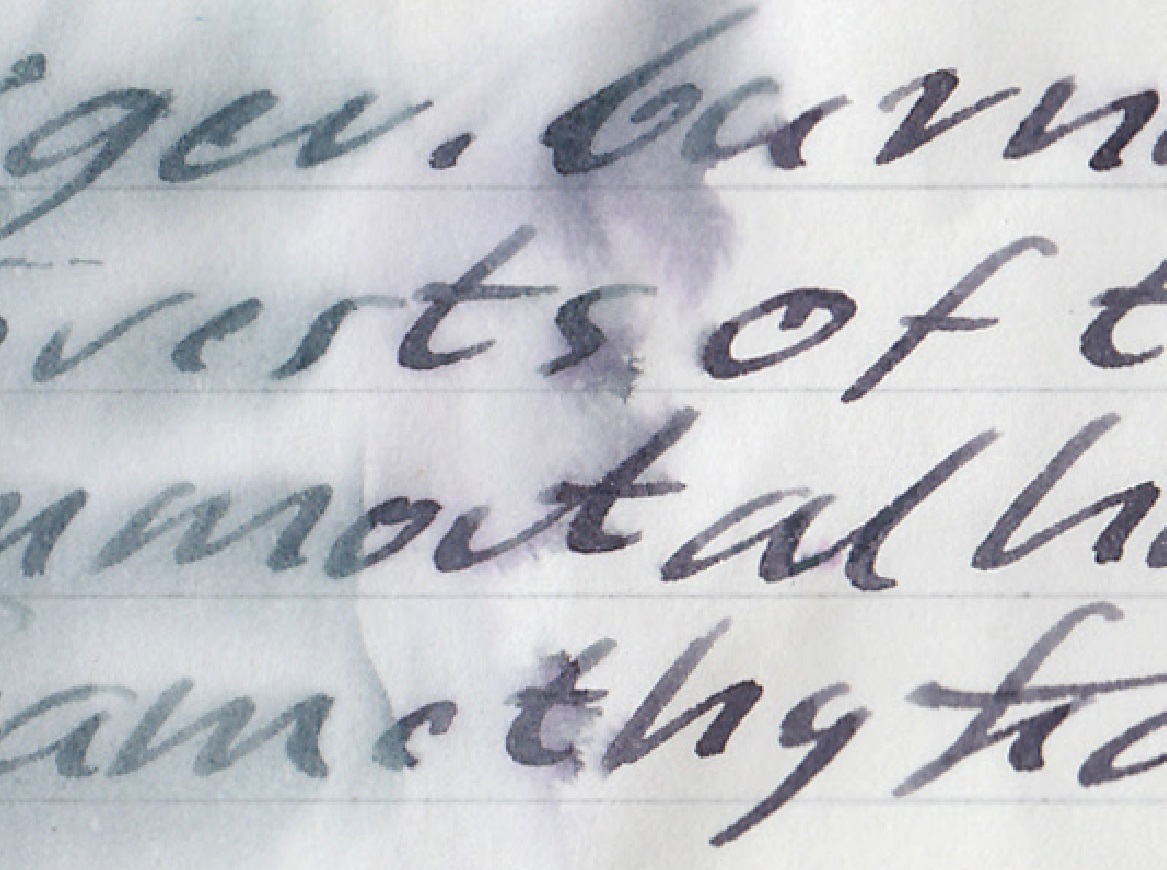 iger. burn
verts of t
mmortal h
ame thy fea